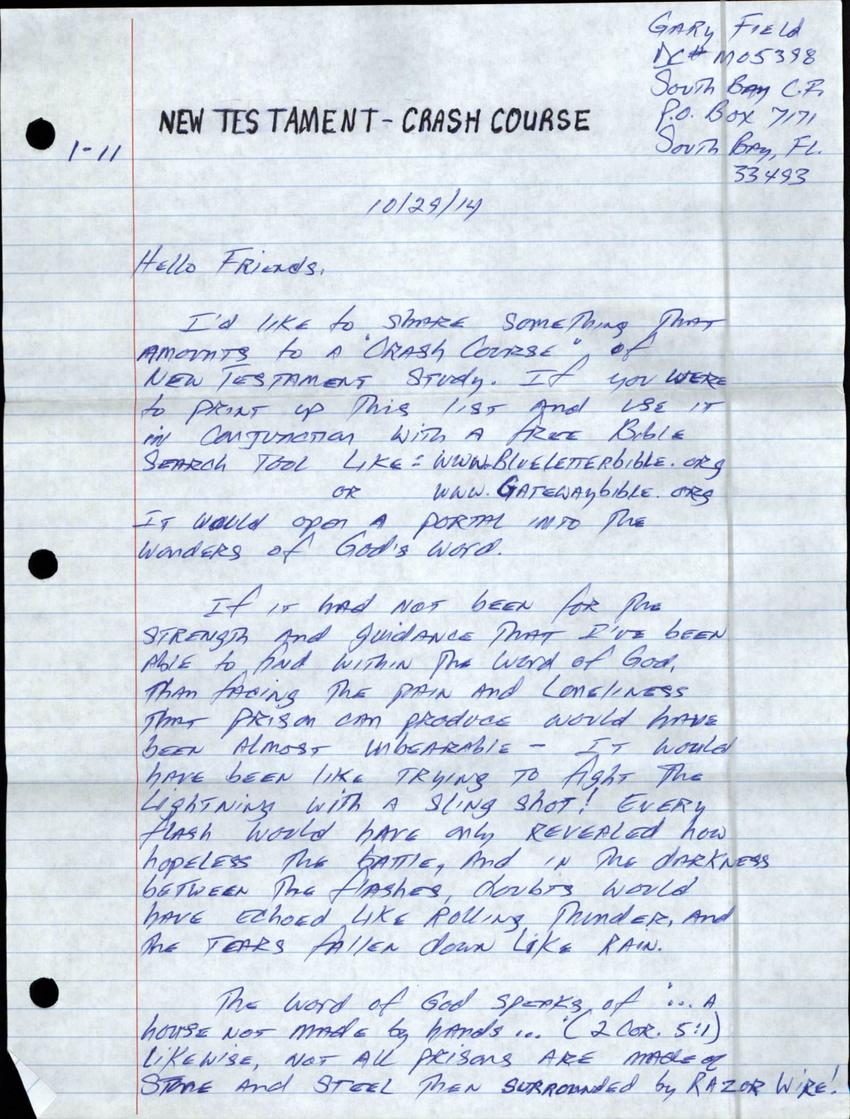 Gary Field
DC# M05398
South Bay C.F.
P.O. Box 7171
South Bay, FL.
33493
NEW TESTAMENT - CRASH COURSE
1-11
10/29/14
Hello Friends,
I'd like to share something that
amounts to a "Crash Course" of
New Testament Study. If you were
to print up this list and use it
in conjunction with a free Bible
search tool like: www.Blueletterbible.org
or www.Gatewaybible.org
It would open a portal into the
wonders of God's word.
If it had not been for the
strength and guidance that I've been
able to find within the word of God,
than facing the pain and loneliness
that prison can produce would have
been almost unbearable - It would
have been like trying to fight the
lightning with a sling shot! Every
flash would have only revealed how
hopeless the battle, and in the darkness
between the flashes, doubts would
have echoed like rolling thunder, and
the tears fallen down like rain.
The word of God speaks of "... a
house not made by hands ..." (2 Cor. 5:1)
Likewise, not all prisons are made of
stone and steel then surrounded by Razor Wire!